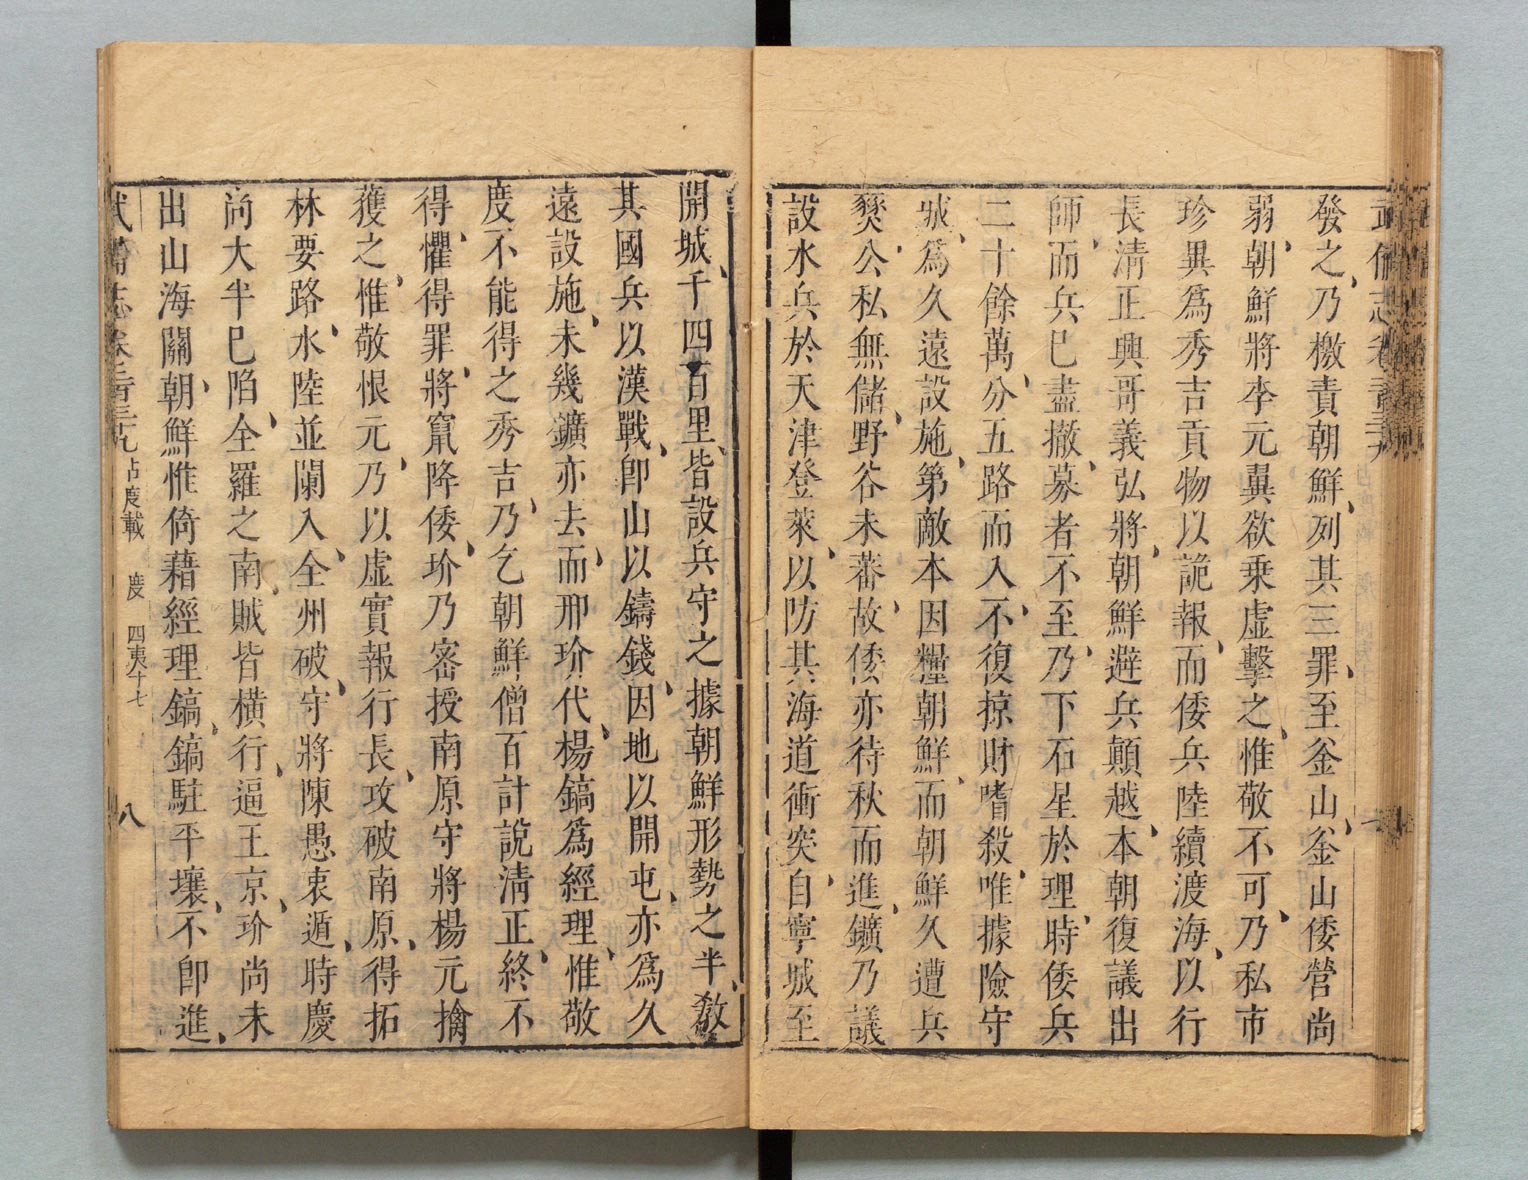 武備志卷
發之、乃檄責朝鮮、列其三罪、至釜山、釜山倭營尚
弱、朝鮮將李元翼欲乗虚擊之、惟敬不可、乃私市
珍異爲秀吉貢物以詭報、而倭兵陸續渡海、以行
長清正興哥義弘將、朝鮮避兵顛越、本朝復議出
師、而兵已盡撤、募者不至、乃下石星於理、時倭兵
二十餘萬、分五路而入、不復掠財嗜殺、唯據險守
城、爲久遠設施、第敵本因糧朝鮮、而朝鮮久遭兵
燹、公私無儲、野谷未蕃、故倭亦待秋而進、鑛乃議
設水兵於天津登萊、以防其海道衝突、自寧城至
開城、千四百里、皆設兵守之據朝鮮形勢之半、敎
其國兵以漢戰、卽山以鑄錢、因地以開屯、亦爲久
遠設施、未幾鑛亦去、而邢玠代、楊鎬爲經理、惟敬
度不能得之秀吉、乃乞朝鮮僧百計說清正、終不
得、懼得罪、將竄降倭、玠乃密授南原守將楊元擒
獲之、惟敬恨元、乃以虛實報行長、攻破南原、得拓
林要路、水陸並闌入、全州破、守將陳愚衷遁、時慶
尚大半已陷、全羅之南、賊皆橫行、逼王京、玠尚未
出山海關、朝鮮惟倚藉經理鎬、鎬駐平壤、不卽進、
武備志卷二百三十九 占度載 度 四夷十七 八